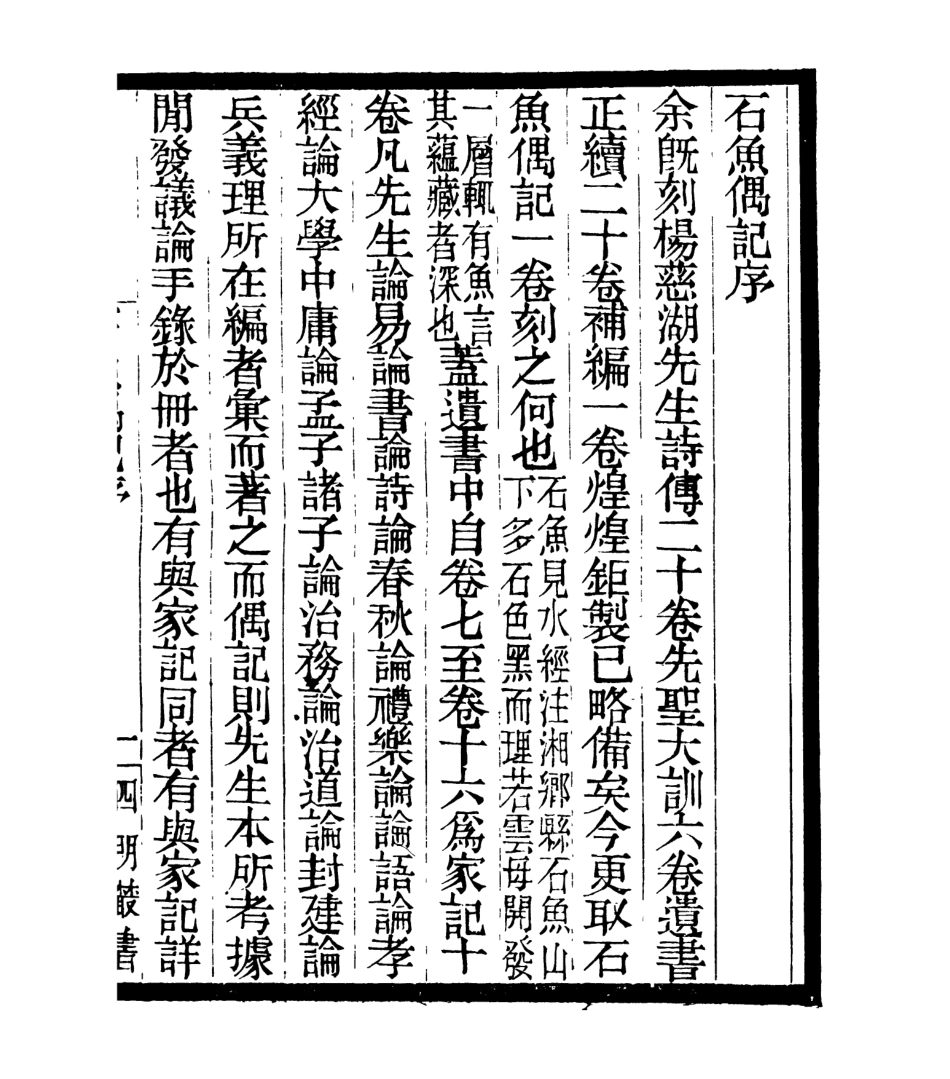 石魚偶記序
余旣刻楊慈湖先生詩傳二十卷先聖大訓六卷遺書
正續二十卷補編一卷煌煌鉅製已略備矣今更取石
魚偶記一卷刻之何也石魚見水經注湘鄉縣石魚山
下多石色黑而理若雲母開發
一層輒有魚言
其蘊藏者深也蓋遺書中自卷七至卷十六爲家記十
卷凡先生論易論書論詩論春秋論禮樂論論語論孝
經論大學中庸論孟子諸子論治務論治道論封建論
兵義理所在編者彙而著之而偶記則先生本所考據
閒發議論手錄於冊者也有與家記同者有與家記詳
一四明叢書